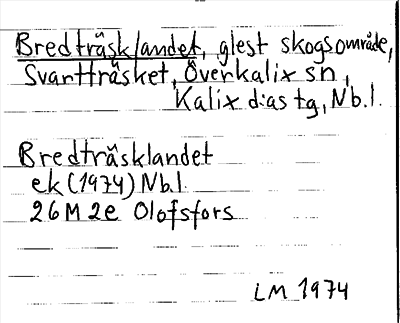 Bredträsklandet, glest skogsområde,
Svartträsket, Överkalix sn,
Kalix d:as tg, Nb.l.
Bredträsklandet
ek (1974) Nbl.
26 M 2e Olofsfors
LM 1974